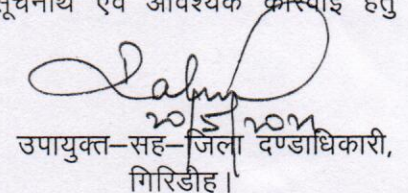 सूचनार्थ एवं आवश्यक कार्रवाई हेतु
उपायुक्त–सह–जिला दण्डाधिकारी,
गिरिडीह।